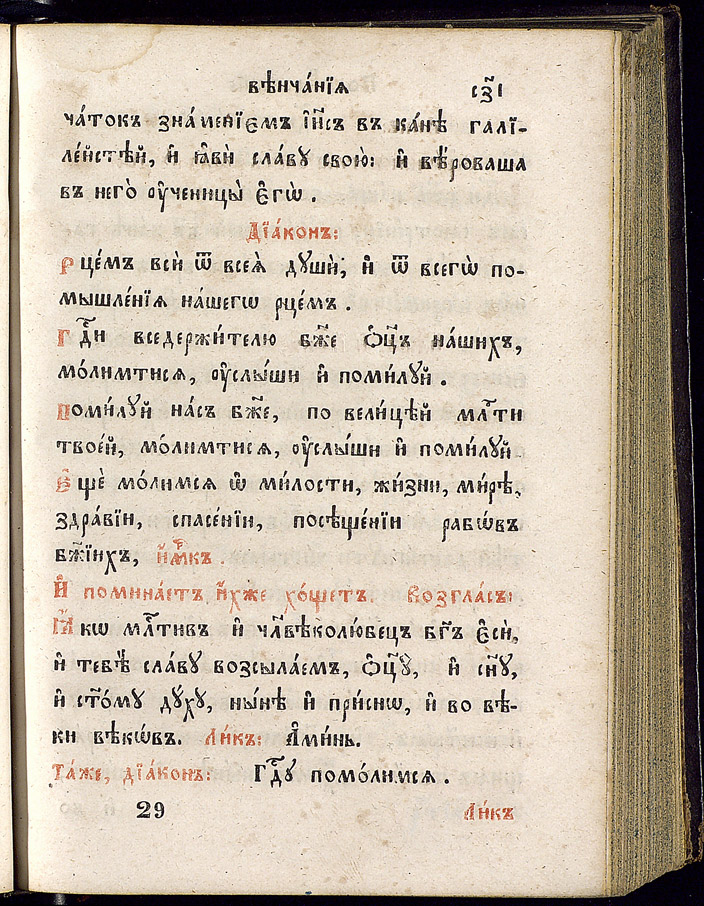 вѣнча́нїѧ сѯ҃і
ча́токъ зна́менїємъ і҆и҃съ въ ка́нѣ галї-
ле́йстѣй, и҆ ꙗ҆вѝ сла́ву свою̀: и҆ вѣ́роваша
въ него̀ ᲂу҆ченицы̀ є҆гѡ̀.
Дїа́конъ:
Рце́мъ всѝ ѿ всеѧ̀ дꙋшѝ, и҆ ѿ всегѡ̀ по-
мышле́нїѧ на́шегѡ рце́мъ.
Гдⷭ҇и вседержи́телю бж҃е ѻ҆ц҃ъ на́шихъ,
мо́лимтисѧ, ᲂу҆слы́ши и҆ поми́лꙋй.
Поми́лꙋй на́съ бж҃е, по вели́цѣй млⷭ҇ти
твое́й, мо́лимтисѧ, ᲂу҆слы́ши и҆ поми́лꙋй.
Є҆щѐ мо́лимсѧ ѡ҆ ми́лости, жи́зни, ми́рѣ,
здра́вїи, спасе́нїи, посѣще́нїи рабѡ́въ
бж҃їихъ, и҆́м҃къ.
И҆ помина́етъ и҆̀хже хо́щетъ. Возгла́съ:
Ꙗ҆́кѡ млⷭ҇тивъ и҆ чл҃вѣколю́бецъ бг҃ъ є҆сѝ,
и҆ тебѣ̀ сла́вꙋ возсыла́емъ, ѻ҆ц҃ꙋ̀, и҆ сн҃ꙋ,
и҆ ст҃о́мꙋ дꙋ́хꙋ, ны́нѣ и҆ при́снѡ, и҆ во вѣ́-
ки вѣкѡ́въ. Ли́къ: А҆ми́нь.
Та́же, дїа́конъ: Гдⷭ҇ꙋ помо́лимсѧ.
29 Ли́къ